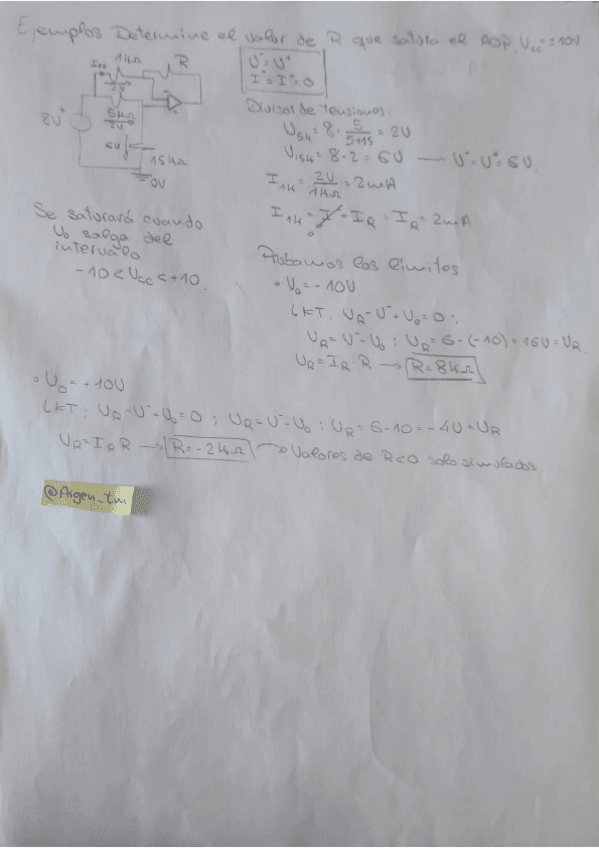 Ejemplos Determine el valor de R que satura el AOP Vcc=±10V
1kΩ
R
I1K
8V
5kΩ
2V
6V
15kΩ
0V
U⁻=U⁺
I⁻=I⁺=0
Divisor de tensiones:
U5K = 8 · 5/(5+15) = 2V
U15K = 8-2 = 6V → U⁻=U⁺=6V.
I1K = 2V/1kΩ = 2mA
I1K = I⁻ + IR = IR = 2mA
0
Se saturará cuando
Uo salga del
intervalo
-10 < Vcc < +10.
Probamos los límites
Uo = -10V
LKT: UR-U⁻+Uo=0;
UR=U⁻-Uo; UR=6-(-10)=16V=UR
UR=IR·R → R=8kΩ
Uo = +10V
LKT: UR-U⁻+Uo=0; UR=U⁻-Uo; UR=6-10=-4V=UR
UR=IR R → R=-2kΩ → Valores de R<0 solo simulados
@Argen_tm